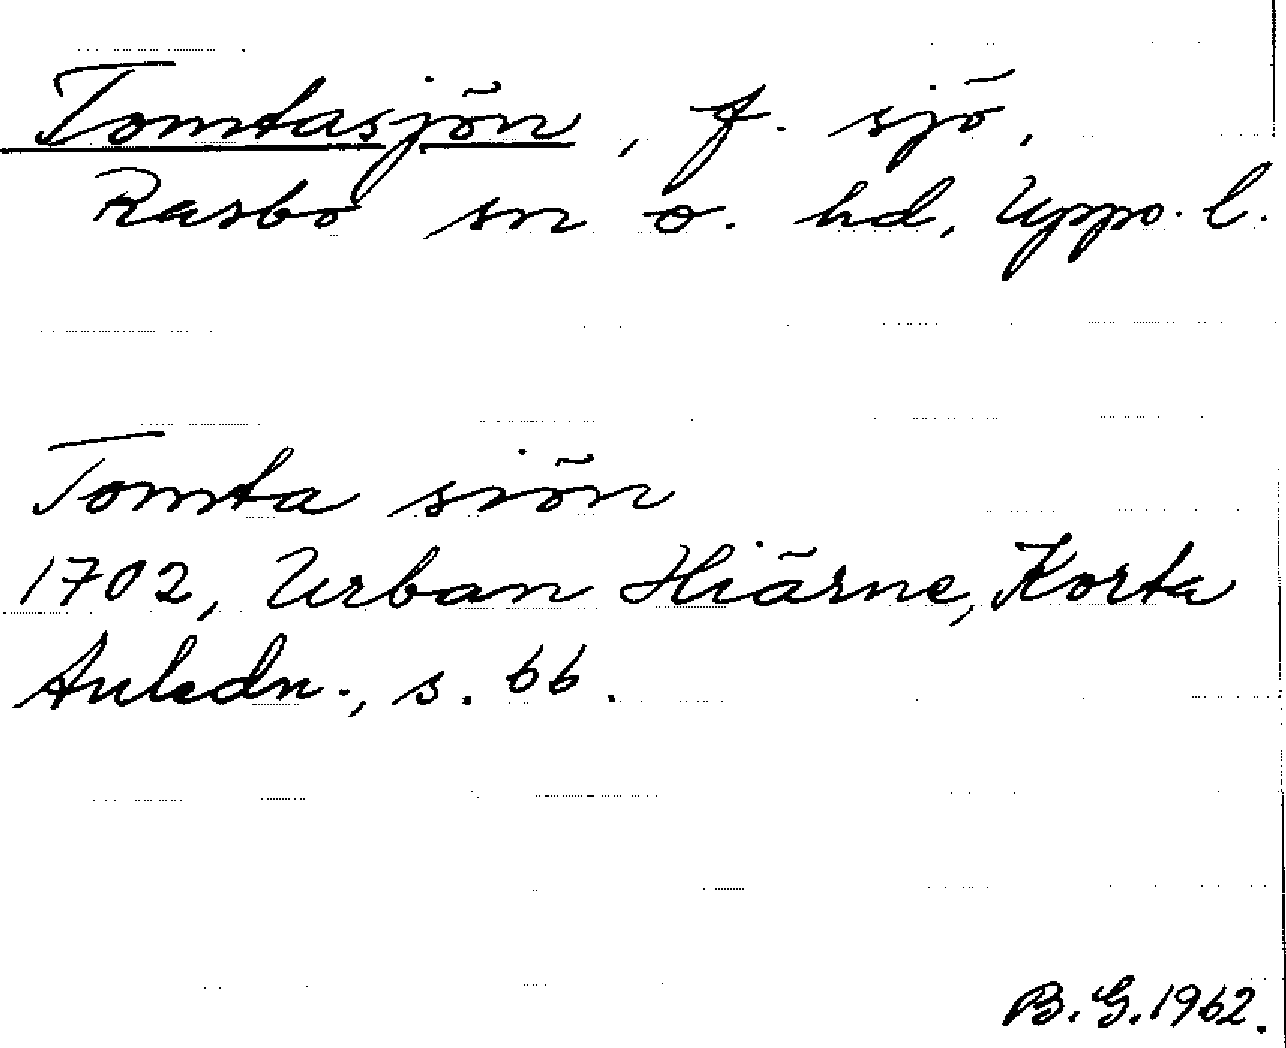 Tomtasjön, f. sjö,
Rasbo sn o. hd, Upps. l.
Tomta siön
1702, Urban Hiärne, Korta
Anledn., s. 66.
B. G. 1962.